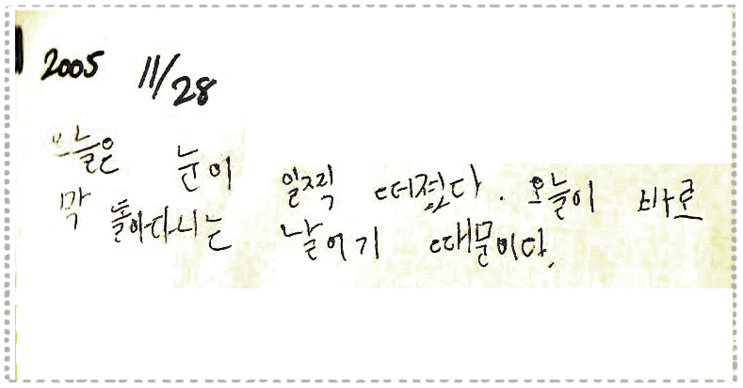 2005 11/28
오늘은 눈이 일찍 떠졌다. 오늘이 바로
막 돌아다니는 날이기 때문이다.